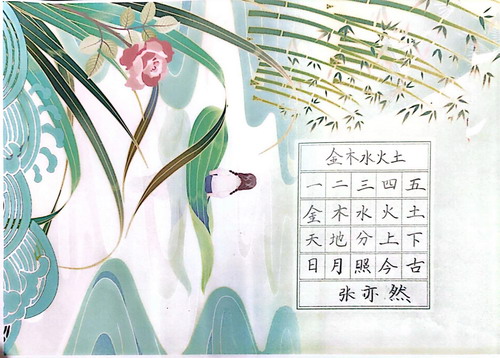 金木水火土
一二三四五
金木水火土
天地分上下
日月照今古
张亦然